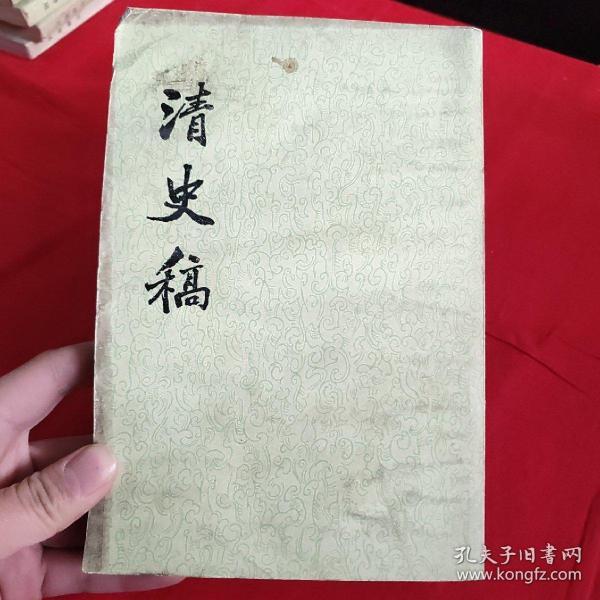 清史稿
孔夫子旧書网
www.kongfz.com